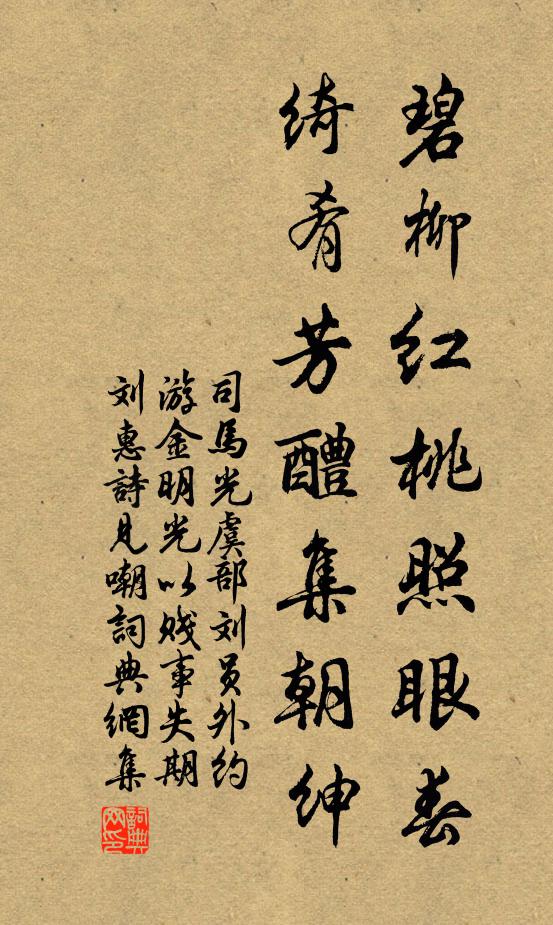 碧柳红桃照眼春
绮肴芳醴集朝绅
司馬光虞部刘员外约
游金明光以贱事失期
刘惠詩見嘲詞典網集
詞典
网印